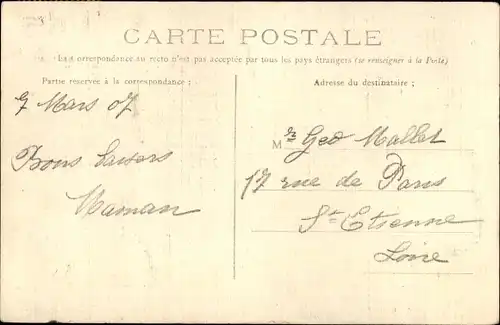 CARTE POSTALE
La correspondance au recto n'est pas acceptée par tous les pays étrangers (se renseigner à la Poste)
Partie réservée à la correspondance :
Adresse du destinataire :
7 Mars 07
Bons baisers
Maman
M rs Geo Mallet
17 rue de Paris
St Etienne
Loire